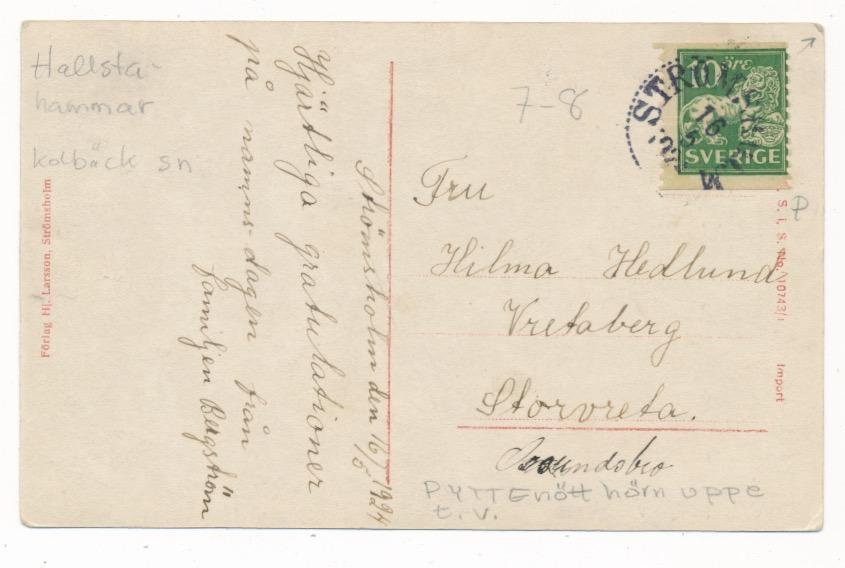 Hallsta-
hammar
kolbäck sn
Förlag Hj. Larsson, Strömsholm
Strömsholm den 16/5 1924
Hjärtliga gratulationer
på namns-dagen från
familjen Bergström
7-8
10 ÖRE
SVERIGE
STRÖMSHOLM
16 5
Fru
Hilma Hedlund
Vretaberg
Storvreta.
PYTTEnött hörn uppe
t.v.
P
S. I. S. No. 10743/1
Import